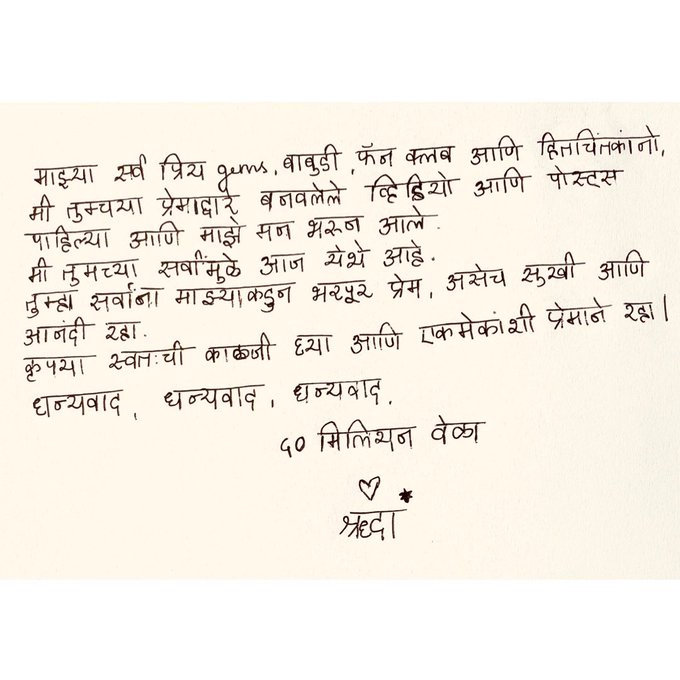 माझ्या सर्व प्रिय gems, बाबुडी, फॅन क्लब आणि हितचिंतकांनो,
मी तुमच्या प्रेमाद्वारे बनवलेले व्हिडियो आणि पोस्ट्स
पाहिल्या आणि माझे मन भरून आले.
मी तुमच्या सर्वांमुळे आज येथे आहे.
तुम्हा सर्वांना माझ्याकडुन भरपूर प्रेम, असेच सुखी आणि
आनंदी रहा.
कृपया स्वतःची काळजी घ्या आणि एकमेकांशी प्रेमाने रहा।
धन्यवाद, धन्यवाद, धन्यवाद,
५० मिलियन वेळा
श्रद्धा